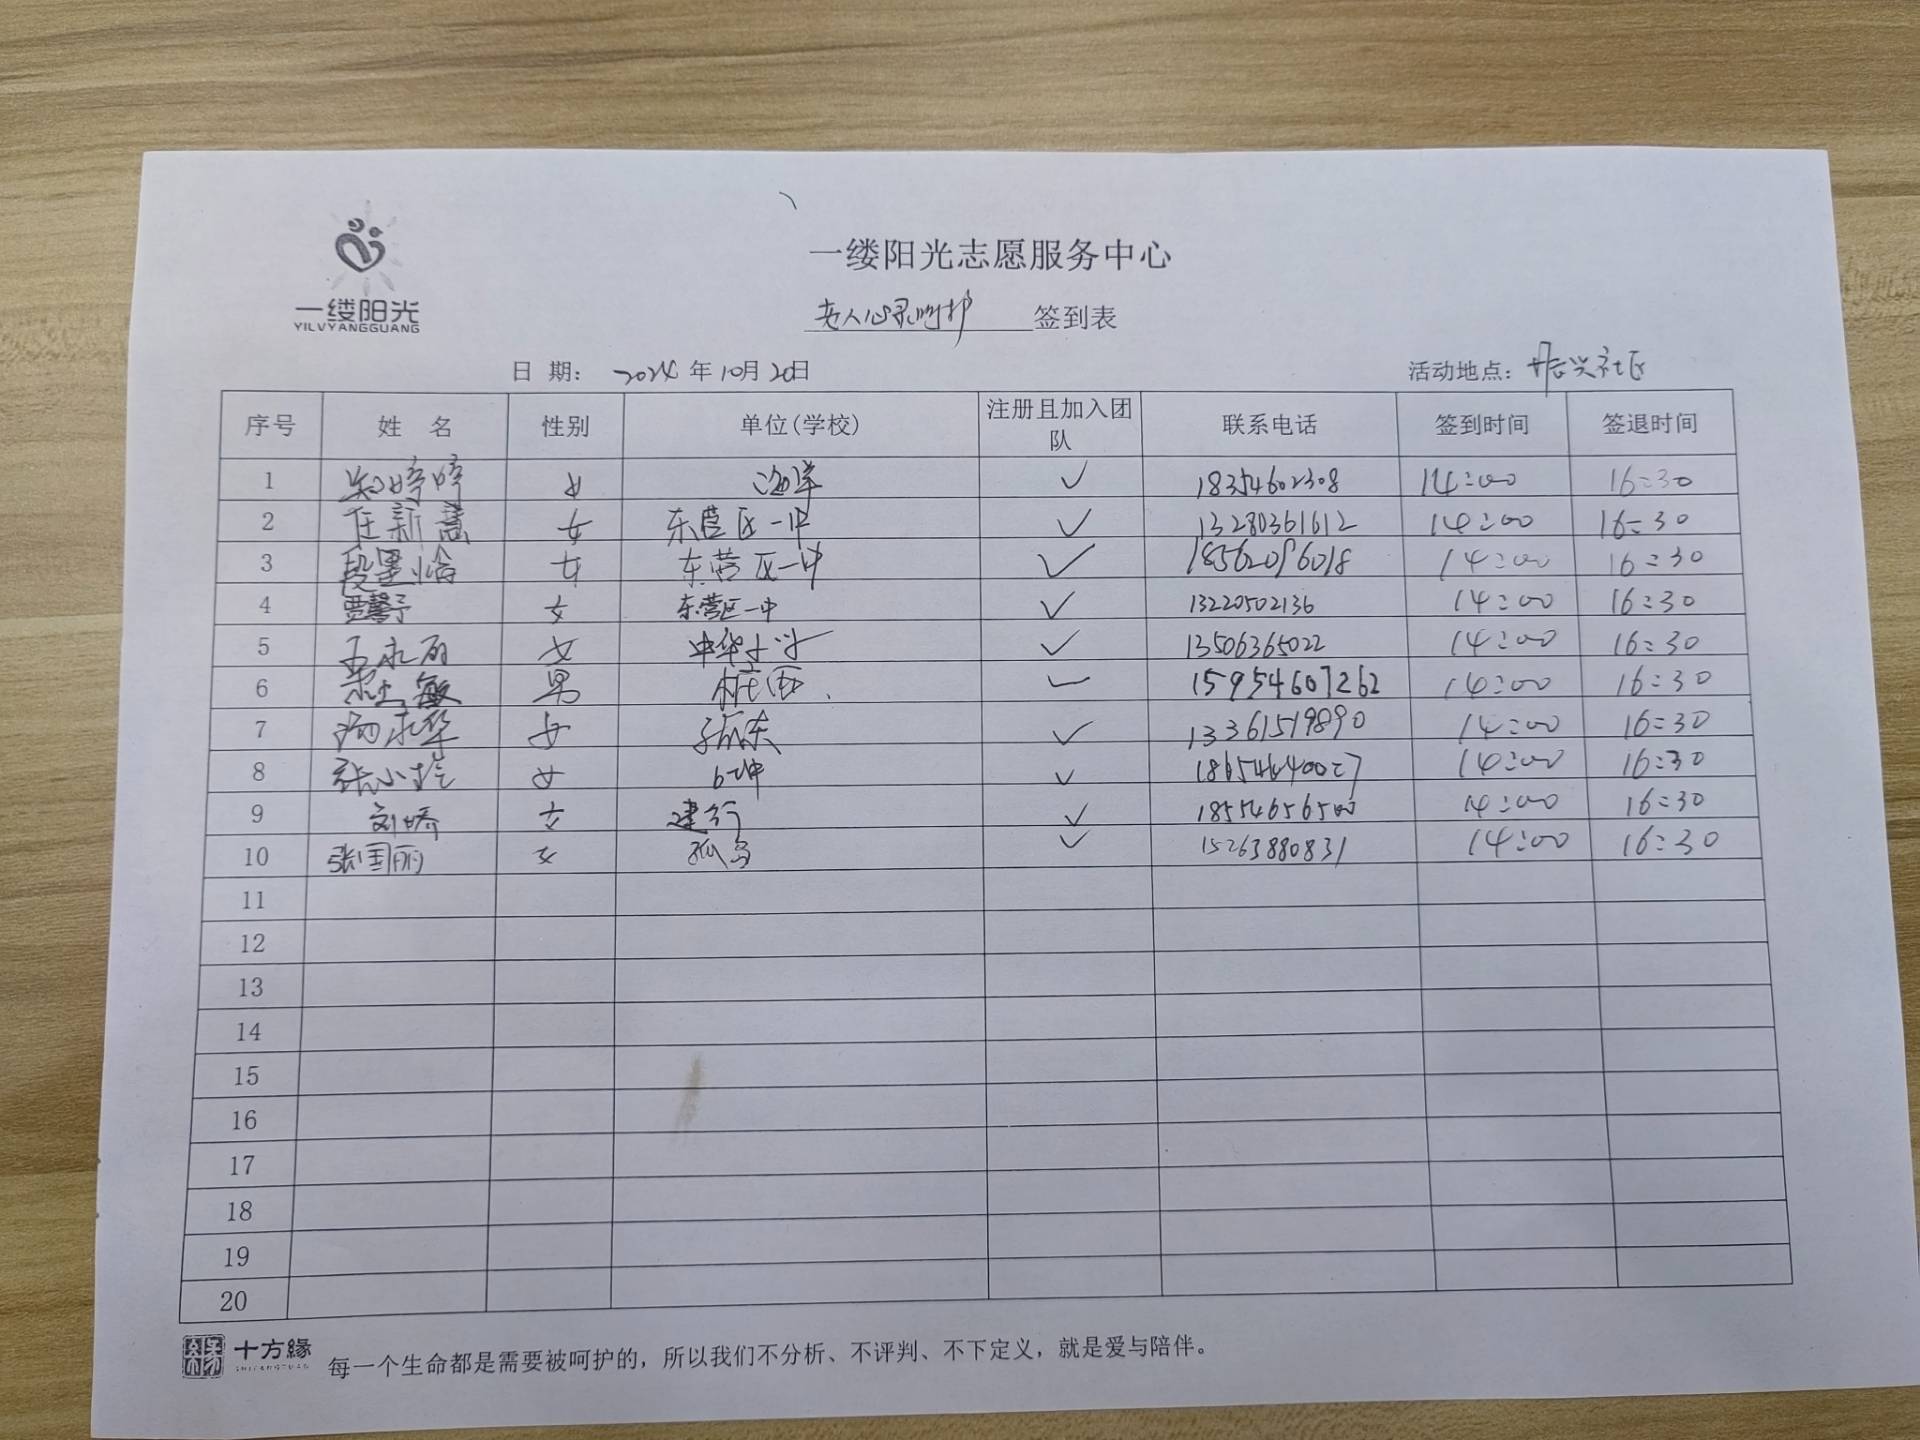 一缕阳光
YILVYANGGUANG
一缕阳光志愿服务中心
老人心灵呵护 签到表
日 期： 2024 年 10月 20日 活动地点：振兴社区
序号 姓 名 性别 单位(学校) 注册且加入团队 联系电话 签到时间 签退时间
1 婷婷 女 海洋 ✓ 18354602308 14:00 16:30
2 任新慧 女 东营区一中 ✓ 13280361612 14:00 16:30
3 段墨愉 女 东营区一中 ✓ 18562096018 14:00 16:30
4 贾馨予 女 东营区一中 ✓ 13220502136 14:00 16:30
5 女 ✓ 13506365022 14:00 16:30
6 敏 男 桩西 ✓ 15954607262 14:00 16:30
7 女 孤东 ✓ 13361519890 14:00 16:30
8 张小 女 ✓ 14:00 16:30
9 刘娇 女 建行 ✓ 18554656500 14:00 16:30
10 张国丽 女 孤岛 ✓ 15263880831 14:00 16:30
11
12
13
14
15
16
17
18
19
20
十方緣
SHIFANGYUAN
每一个生命都是需要被呵护的，所以我们不分析、不评判、不下定义，就是爱与陪伴。